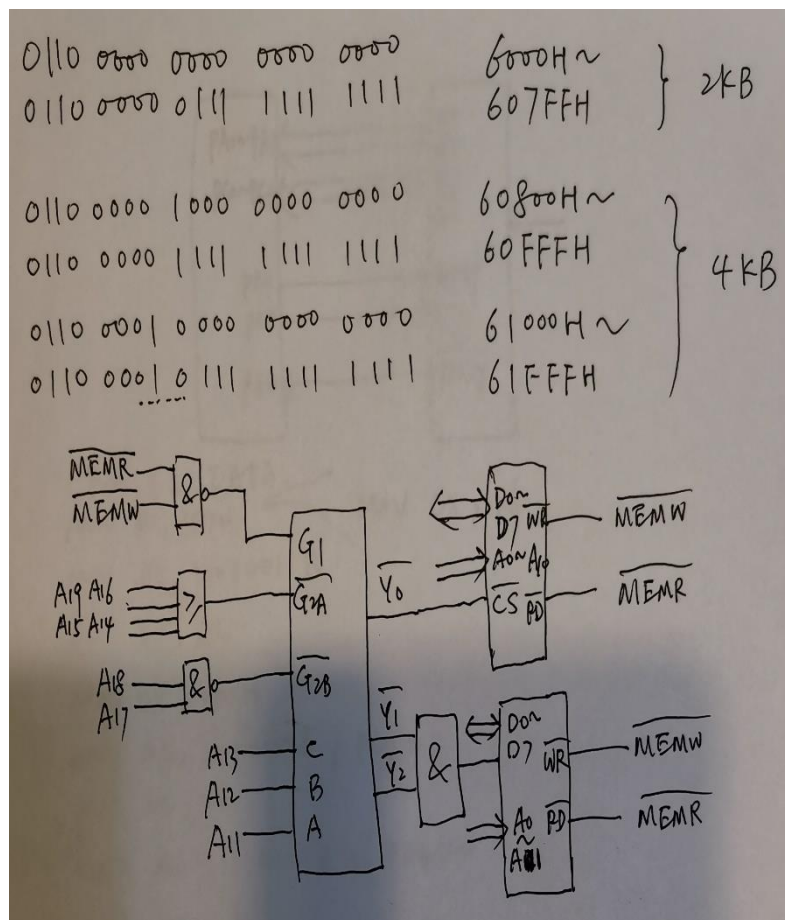 0110 0000 0000 0000 0000 6000H~
0110 0000 0111 1111 1111 607FFH
2KB
0110 0000 1000 0000 0000 60800H~
0110 0000 1111 1111 1111 60FFFH
0110 0001 0000 0000 0000 61000H~
0110 0001 0111 1111 1111 61FFFH
4KB
M̅E̅M̅R̅
M̅E̅M̅W̅
&
G1
A19 A16
A15 A14
≥
G̅2̅A̅
A18
A17
&
G̅2̅B̅
A13 C
A12 B
A11 A
Y̅0̅
D0~
D7 W̅R̅ M̅E̅M̅W̅
A0~A10
C̅S̅ R̅D̅ M̅E̅M̅R̅
Y̅1̅
Y̅2̅
&
D0~
D7 W̅R̅ M̅E̅M̅W̅
A0 R̅D̅ M̅E̅M̅R̅
~
A11